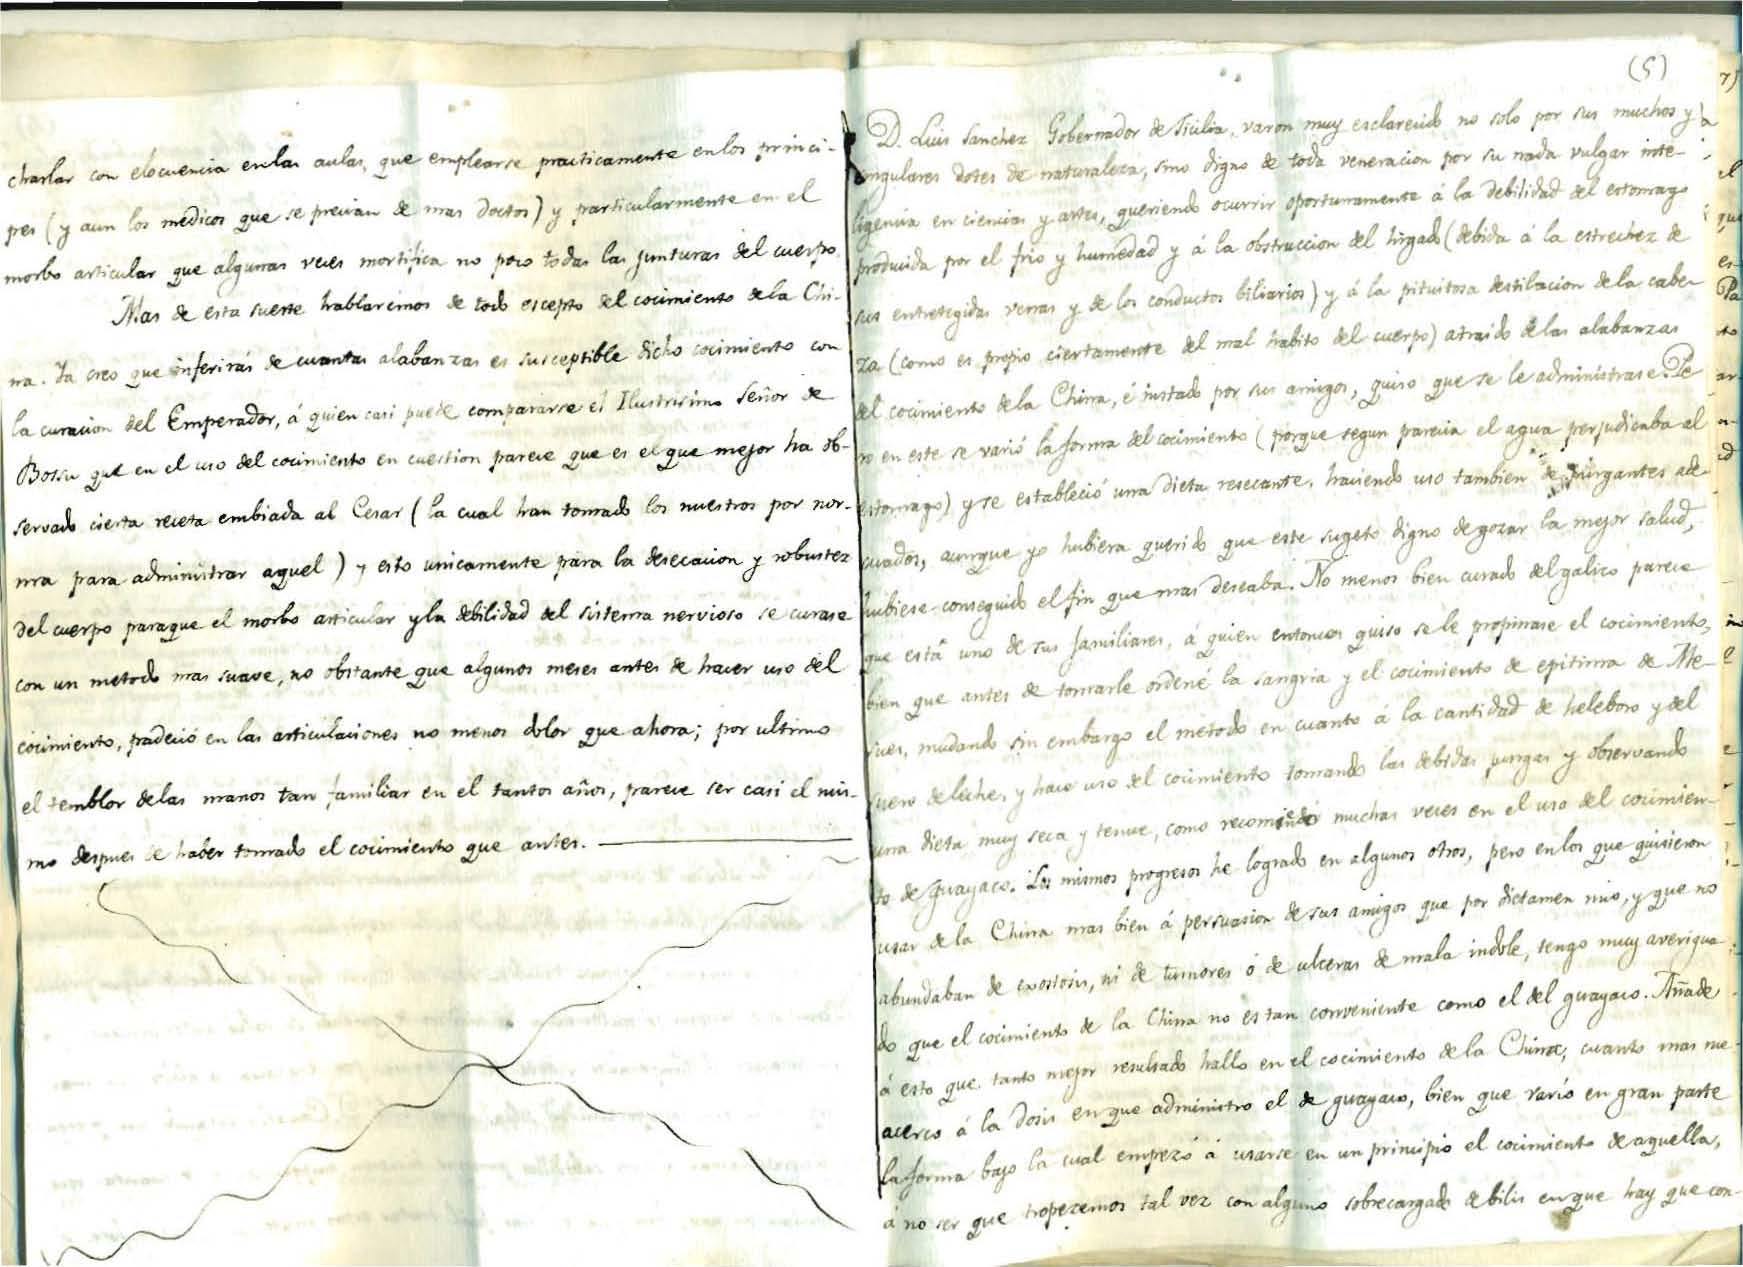 charlar con elocuencia en las aulas, que emplearse practicamente en los princi-
pes (y aun los medicos que se precian de mas doctos) y particularmente en el
morbo articular que algunas veces mortifica no poco todas las junturas del cuerpo.
Mas de esta suerte hablaremos de todo escepto del cocimiento de la Chi-
na. Ya creo que inferirás de cuantas alabanzas es susceptible dicho cocimiento con
la curacion del Emperador, á quien casi puede compararse el Ilustrisimo Señor de
Bossu que en el uso del cocimiento en cuestion parece que es el que mejor ha ob-
servado cierta receta embiada al Cesar (la cual han tomado los nuestros por nor-
ma para administrar aquel) y esto unicamente para la desecacion y robustez
del cuerpo paraque el morbo articular y la debilidad del sistema nervioso se curase
con un metodo mas suave, no obstante que algunos meses antes de hacer uso del
cocimiento, padeció en las articulaciones no menos dolor que ahora; por ultimo
el temblor de las manos tan familiar en el tantos años, parece ser casi el mis-
mo despues de haber tomado el cocimiento que antes.
(5)
D. Luis Sanchez Gobernador de Sicilia, varon muy esclarecido no solo por sus muchos y
singulares dotes de naturaleza, sino digno de toda veneracion por su nada vulgar inte-
ligencia en ciencias y artes, queriendo ocurrir oportunamente á la debilidad del estomago
producida por el frio y humedad y á la obstruccion del higado (debida á la estrechez de
sus entretegidas venas y de los conductos biliarios) y á la pituitosa destilacion de la cabe-
za (como es propio ciertamente del mal habito del cuerpo) atraido de las alabanzas
del cocimiento de la China, é instado por sus amigos, quiso que se le administrase. Pe
ro en este se varió la forma del cocimiento (porque segun parecia el agua perjudicaba al
estomago) y se estableció una dieta resecante, haciendo uso tambien de purgantes ade
cuados, aunque yo hubiera querido que este sugeto digno de gozar la mejor salud,
hubiese conseguido el fin que mas deseaba. No menos bien curado del galico parece
que está uno de sus familiares, á quien entonces quiso se le propinase el cocimiento,
bien que antes de tomarle ordené la sangria y el cocimiento de epitima de Me-
sues, mudando sin embargo el metodo en cuanto á la cantidad de heleboro y del
suero de leche, y hace uso del cocimiento tomando las debidas purgas y observando
una dieta muy seca y tenue, como recomiendo muchas veces en el uso del cocimien-
to de guayaco. Los mismos progresos he logrado en algunos otros, pero en los que quisieron
usar de la China mas bien á persuasion de sus amigos que por dictamen mio, y que no
abundaban de exostosis, ni de tumores ó de ulceras de mala indole, tengo muy averigua
do que el cocimiento de la China no es tan conveniente como el del guayaco. Añade
á esto que tanto mejor resultado hallo en el cocimiento de la China, cuanto mas me
acerco á la dosis en que administro el de guayaco, bien que varío en gran parte
la forma bajo la cual empezó á usarse en un principio el cocimiento de aquella,
á no ser que tropezemos tal vez con alguno sobrecargado de bilis en que hay que con-